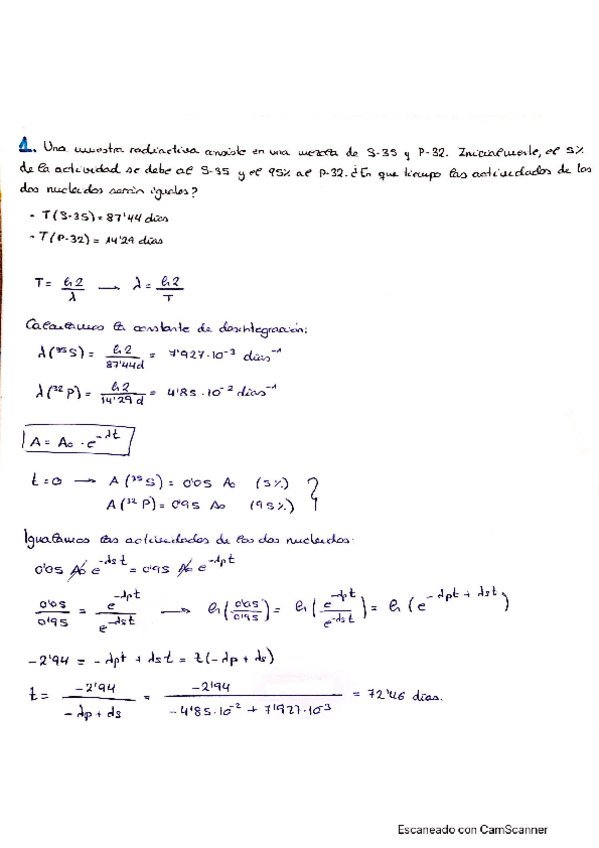 1. Una muestra radiactiva consiste en una mezcla de S-35 y P-32. Inicialmente, el 5%
de la actividad se debe al S-35 y el 95% al P-32. ¿En que tiempo las actividades de los
dos nucleidos serán iguales?
- T(S-35) = 87'44 días
- T(P-32) = 14'29 días
T = ln 2 / λ → λ = ln 2 / T
Calculamos la constante de desintegración:
λ(³⁵S) = ln 2 / 87'44d = 7'927·10⁻³ días⁻¹
λ(³²P) = ln 2 / 14'29 d = 4'85·10⁻² días⁻¹
A = A₀ · e^(-λt)
t=0 → A(³⁵S) = 0'05 A₀ (5%)
A(³²P) = 0'95 A₀ (95%)
Igualamos las actividades de los dos nucleidos:
0'05 A₀ e^(-λst) = 0'95 A₀ e^(-λpt)
0'05 / 0'95 = e^(-λpt) / e^(-λst) → ln(0'05 / 0'95) = ln(e^(-λpt) / e^(-λst)) = ln(e^(-λpt + λst))
-2'94 = -λpt + λst = t(-λp + λs)
t = -2'94 / -λp + λs = -2'94 / -4'85·10⁻² + 7'927·10⁻³ = 72'46 días.
Escaneado con CamScanner